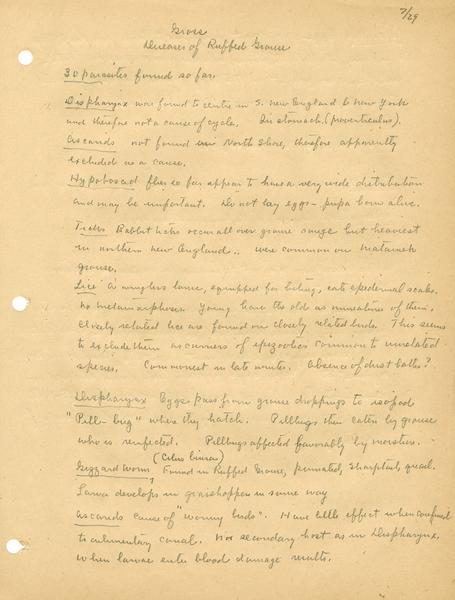 7/29
Gross
Diseases of Ruffed Grouse
30 parasites found so far.
Dispharynx was found to centre in S. New England & New York
and therefore not a cause of cycle. In stomach (proventriculus).
Ascarids not found in North Shore, therefore apparently
excluded as a cause.
Hypoboscid flies so far appear to have a very wide distribution
and may be important. Do not lay eggs - pupa born alive.
Ticks Rabbit ticks occur all over grouse range but heaviest
in northern New England.. were common on Matamek
grouse.
Lice A wingless louse, equipped for biting, eats epidermal scales.
no metamorphosis. Young have the old as miniatures of them.
Closely related lice are found on closely related birds. This seems
to exclude them as carriers of epizootics common to unrelated
species. Commonest in late winter. Absence of dust baths?
Dispharynx Eggs pass from grouse droppings to isopod
"Pill-bug" where they hatch. Pillbugs then eaten by grouse
who is reinfected. Pillbugs affected favorably by moisture.
Gizzard worm Found in Ruffed Grouse, pinnated, sharptail, quail.
Larva develops in grasshopper in some way
Ascarids cause of "wormy birds". Have little effect when confined
to alimentary canal. No secondary host as in Dispharynx.
When larvae enter blood damage results.